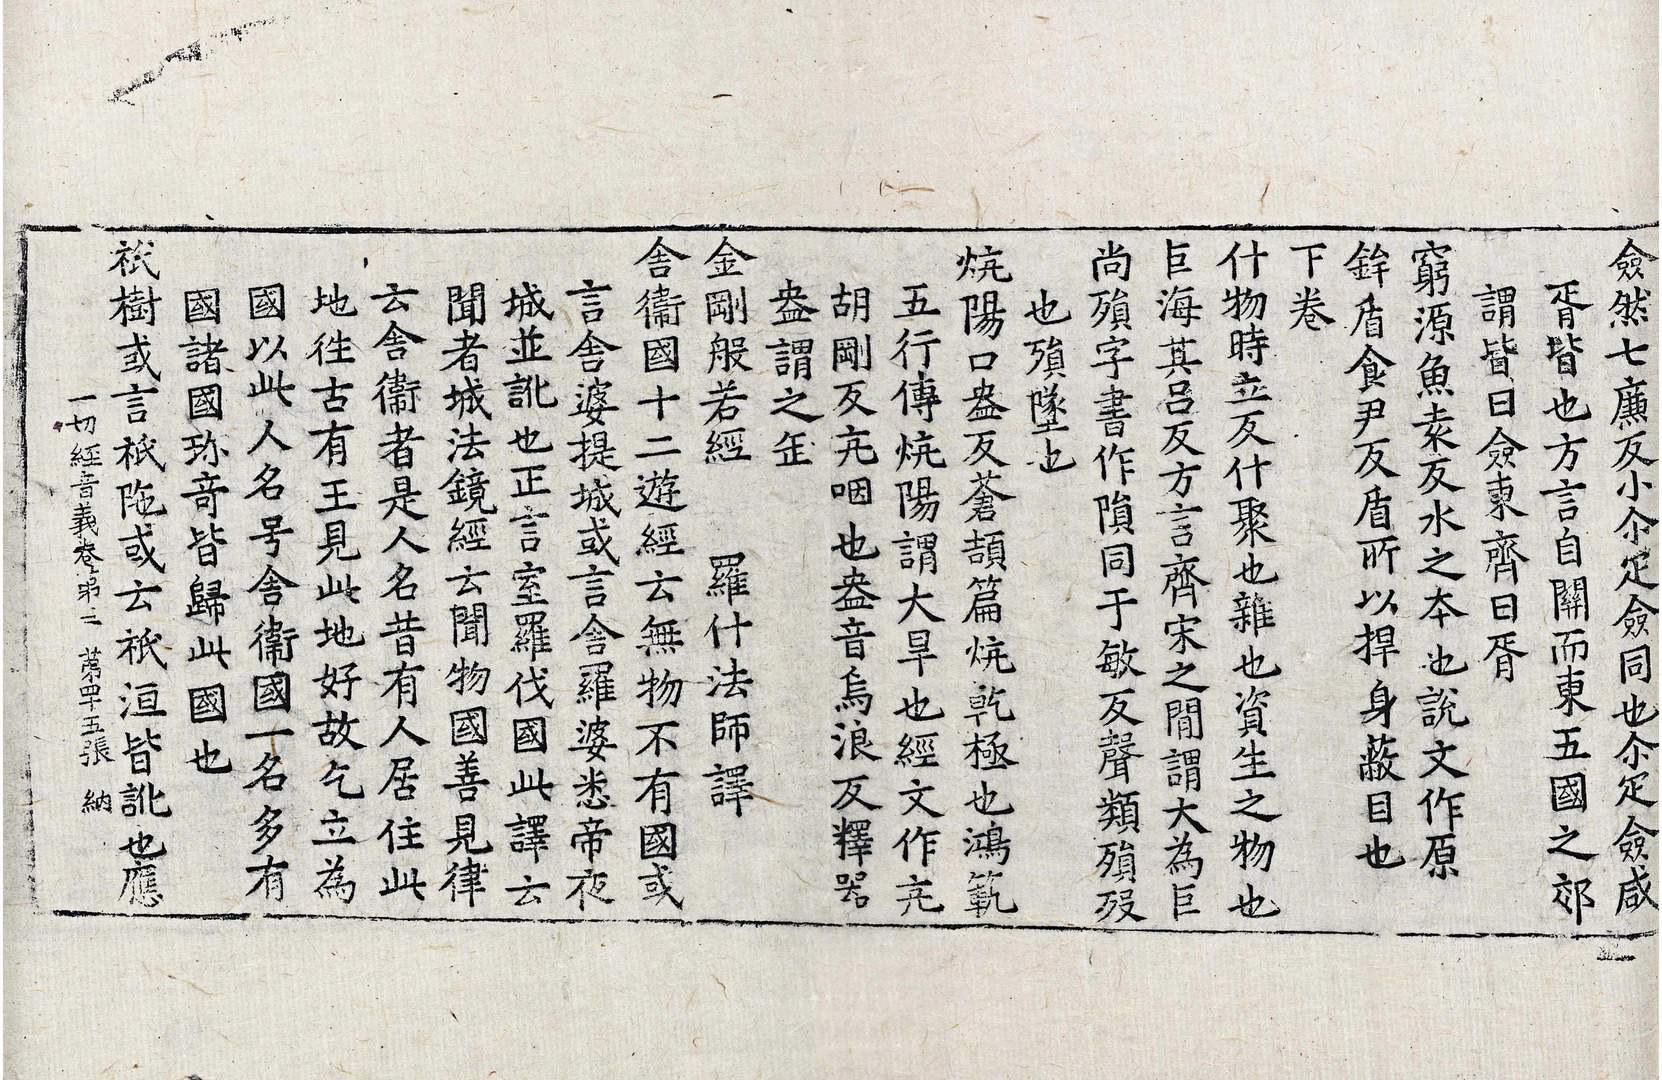 僉然七廉反小尒疋僉同也尒疋僉咸
胥皆也方言自關而東五國之郊
謂皆曰僉東齊曰胥
窮源魚袁反水之本也說文作原
鉾盾食尹反盾所以捍身蔽目也
下卷
什物時立反什聚也雜也資生之物也
巨海其呂反方言齊宋之間謂大為巨
尚殞字書作隕同于敏反聲類殞歿
也殞墜也
炕陽口盎反蒼頡篇炕乾極也鴻範
五行傳炕陽謂大旱也經文作亢
胡剛反亢咽也盎音烏浪反釋器
盎謂之缶
金剛般若經　羅什法師譯
舍衛國十二遊經云無物不有國或
言舍婆提城或言舍羅婆悉帝夜
城並訛也正言室羅伐國此譯云
聞者城法鏡經云聞物國善見律
云舍衛者是人名昔有人居住此
地往古有王見此地好故乞立為
國以此人名号舍衛國一名多有
國諸國珎奇皆歸此國也
祇樹或言祇陁或云祇洹皆訛也應
一切經音義卷第三　第四十五張　納